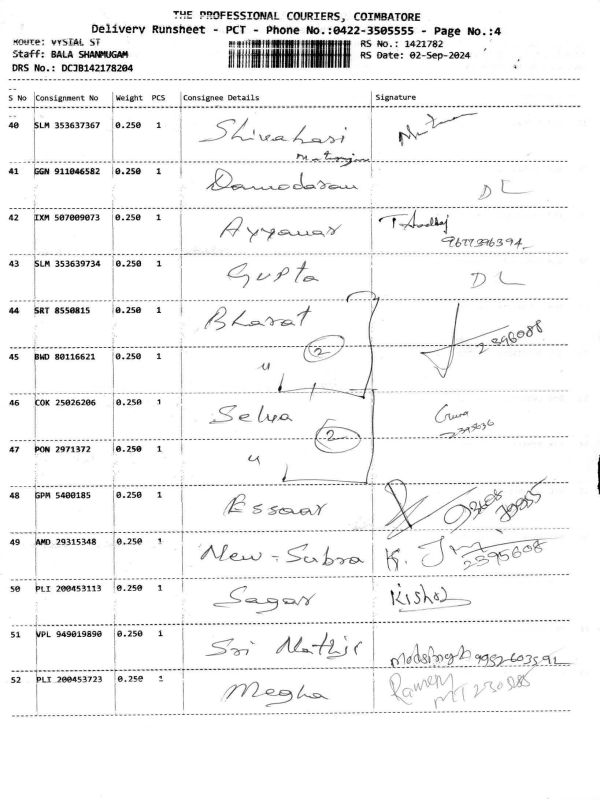 THE PROFESSIONAL COURIERS, COIMBATORE
Delivery Runsheet - PCT - Phone No.:0422-3505555 - Page No.:4
Route: VYSIAL ST
RS No.: 1421782
Staff: BALA SHANMUGAM
RS Date: 02-Sep-2024
DRS No.: DCJB142178204
S No Consignment No Weight PCS Consignee Details Signature
40 SLM 353637367 0.250 1 Shivahari
41 GGN 911046582 0.250 1 Damodaran DL
42 IXM 507009073 0.250 1 Ayyanar
43 SLM 353639734 0.250 1 Gupta DL
44 SRT 8550815 0.250 1 Bharat 2396088
45 BWD 80116621 0.250 1 u 2
46 COK 25026206 0.250 1 Selva
47 PON 2971372 0.250 1 u 2
48 GPM 5400185 0.250 1 Essaar
49 AMD 29315348 0.250 1 New-Subra K. 2395608
50 PLI 200453113 0.250 1 Sagar Kishor
51 VPL 949019890 0.250 1 Sri Mathji
52 PLI 200453723 0.250 1 Megha